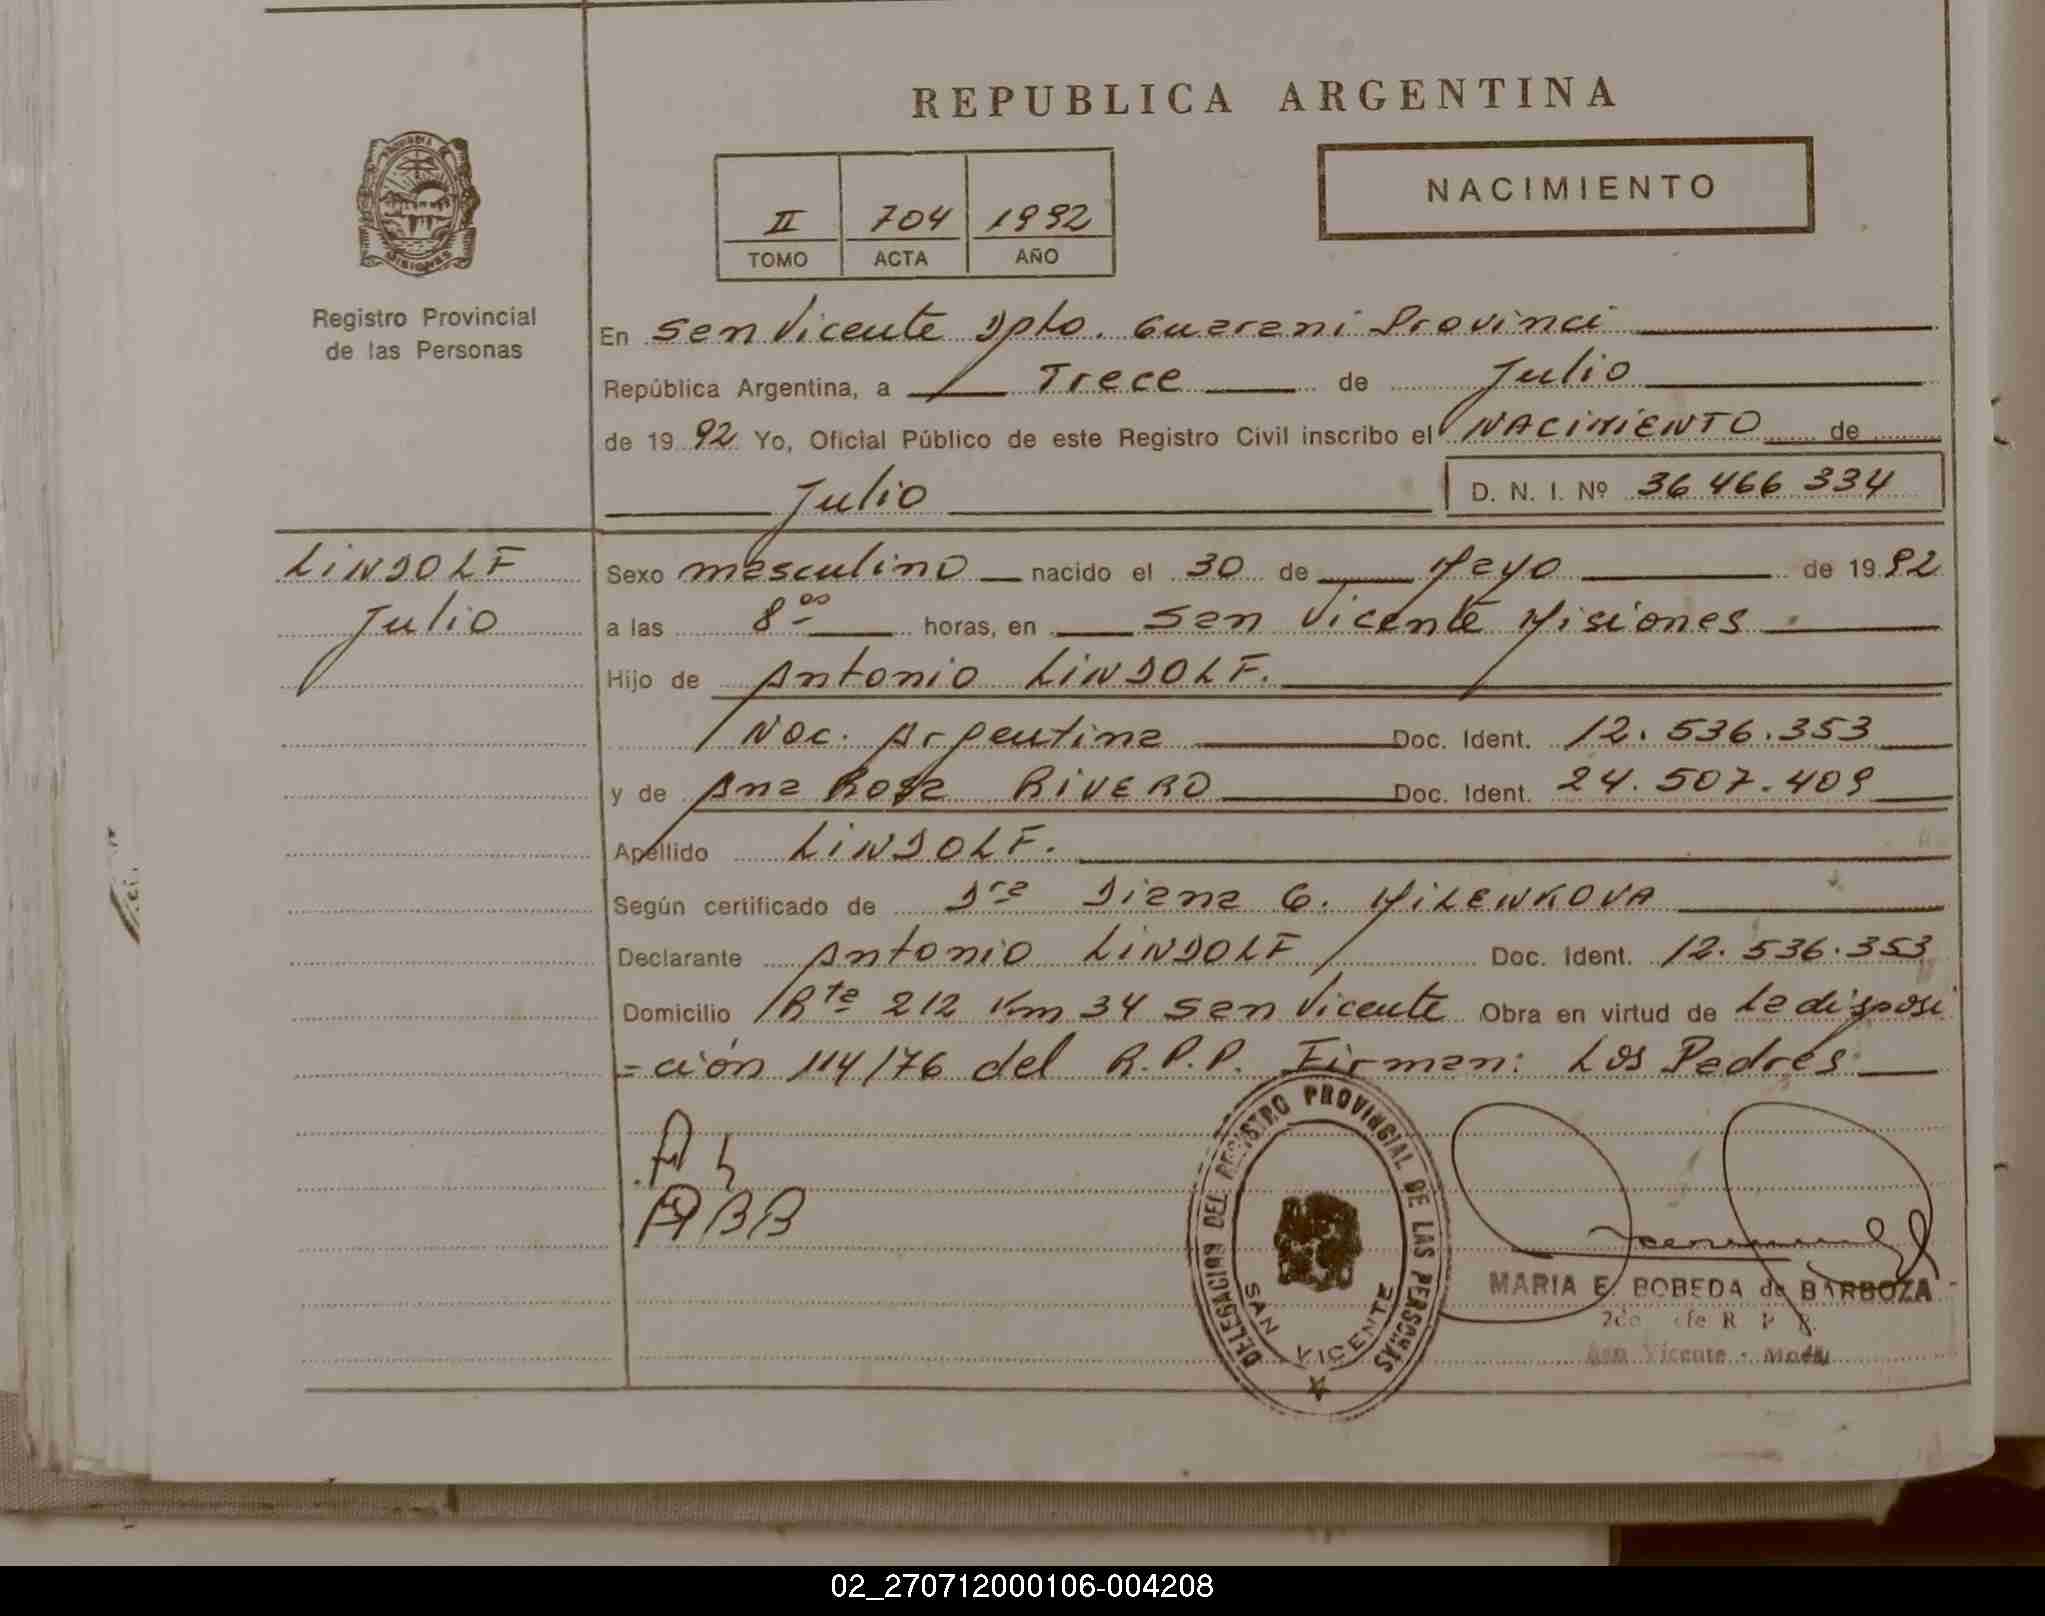 REPUBLICA ARGENTINA
NACIMIENTO
II 704 1992
TOMO ACTA AÑO
PROVINCIA DE MISIONES
Registro Provincial
de las Personas
En San Vicente Dpto. Guarani Provinci
República Argentina, a Trece de Julio
de 1992 Yo, Oficial Público de este Registro Civil inscribo el NACIMIENTO de
Julio
D. N. I. Nº 36 466 334
LINDOLF
Julio
Sexo masculino nacido el 30 de Mayo de 1992
a las 8 oo horas, en San Vicente Misiones
Hijo de Antonio LINDOLF.
Nac. Argentina Doc. Ident. 12.536.353
y de Ana Rosa RIVERO Doc. Ident. 24.507.409
Apellido LINDOLF.
Según certificado de Dra Diana G. MILENKOVA
Declarante Antonio LINDOLF Doc. Ident. 12.536.353
Domicilio Rta 212 Km 34 San Vicente Obra en virtud de La disposi
=ción 114/76 del R.P.P. Firman: Los Padres
DELEGACION DEL REGISTRO PROVINCIAL DE LAS PERSONAS
SAN VICENTE
MARIA E. BOBEDA de BARBOZA
San Vicente -
02_270712000106-004208